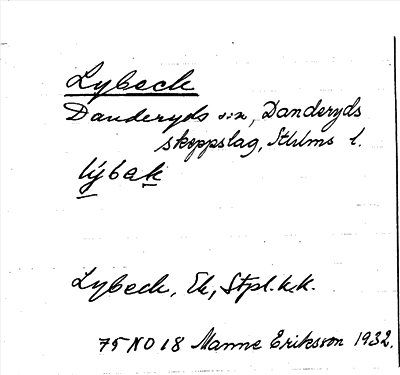 Lybeck
Danderyds sn, Danderyds
skeppslag, Sthlms l.
lýbak
Lybeck, Eh, Stpl. k.k.
75 NO 18 Manne Eriksson 1932.